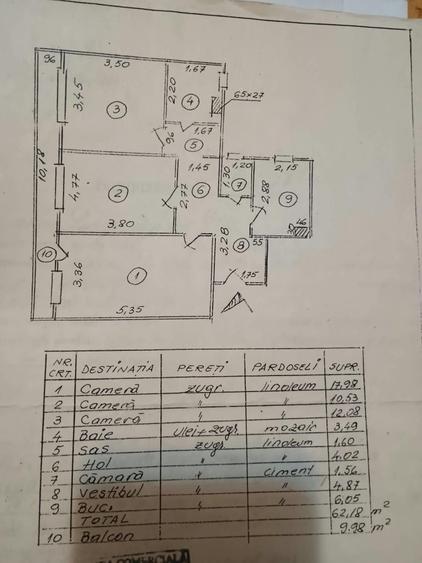 96
3,50
1,67
3,45
3
2,20
4
65x27
96
1,67
5
10,18
4,77
2
1,45
6
2,77
1,30
1,20
7
2,15
2,88
9
46
3,80
3,28
8
55
10
3,36
1
1,75
5,35
NR. CRT. DESTINAȚIA PEREȚI PARDOSELI SUPR.
1 Cameră zugr. linoleum 17,98
2 Cameră " " 10,53
3 Cameră " " 12,08
4 Baie Ulei+zugr. mozaic 3,49
5 Sas zugr. linoleum 1,60
6 Hol " " 4,02
7 Cămară " ciment 1,56
8 Vestibul " " 4,87
9 Buc. " " 6,05
TOTAL 62,18 m²
10 Balcon 9,98 m²